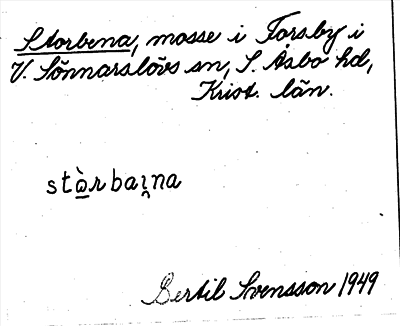 Storbena, mosse i Forsby i
V. Sönnarslövs sn, S. Åsbo hd,
Krist. län.
stɑ̱̀rbai̯na
Bertil Svensson 1949